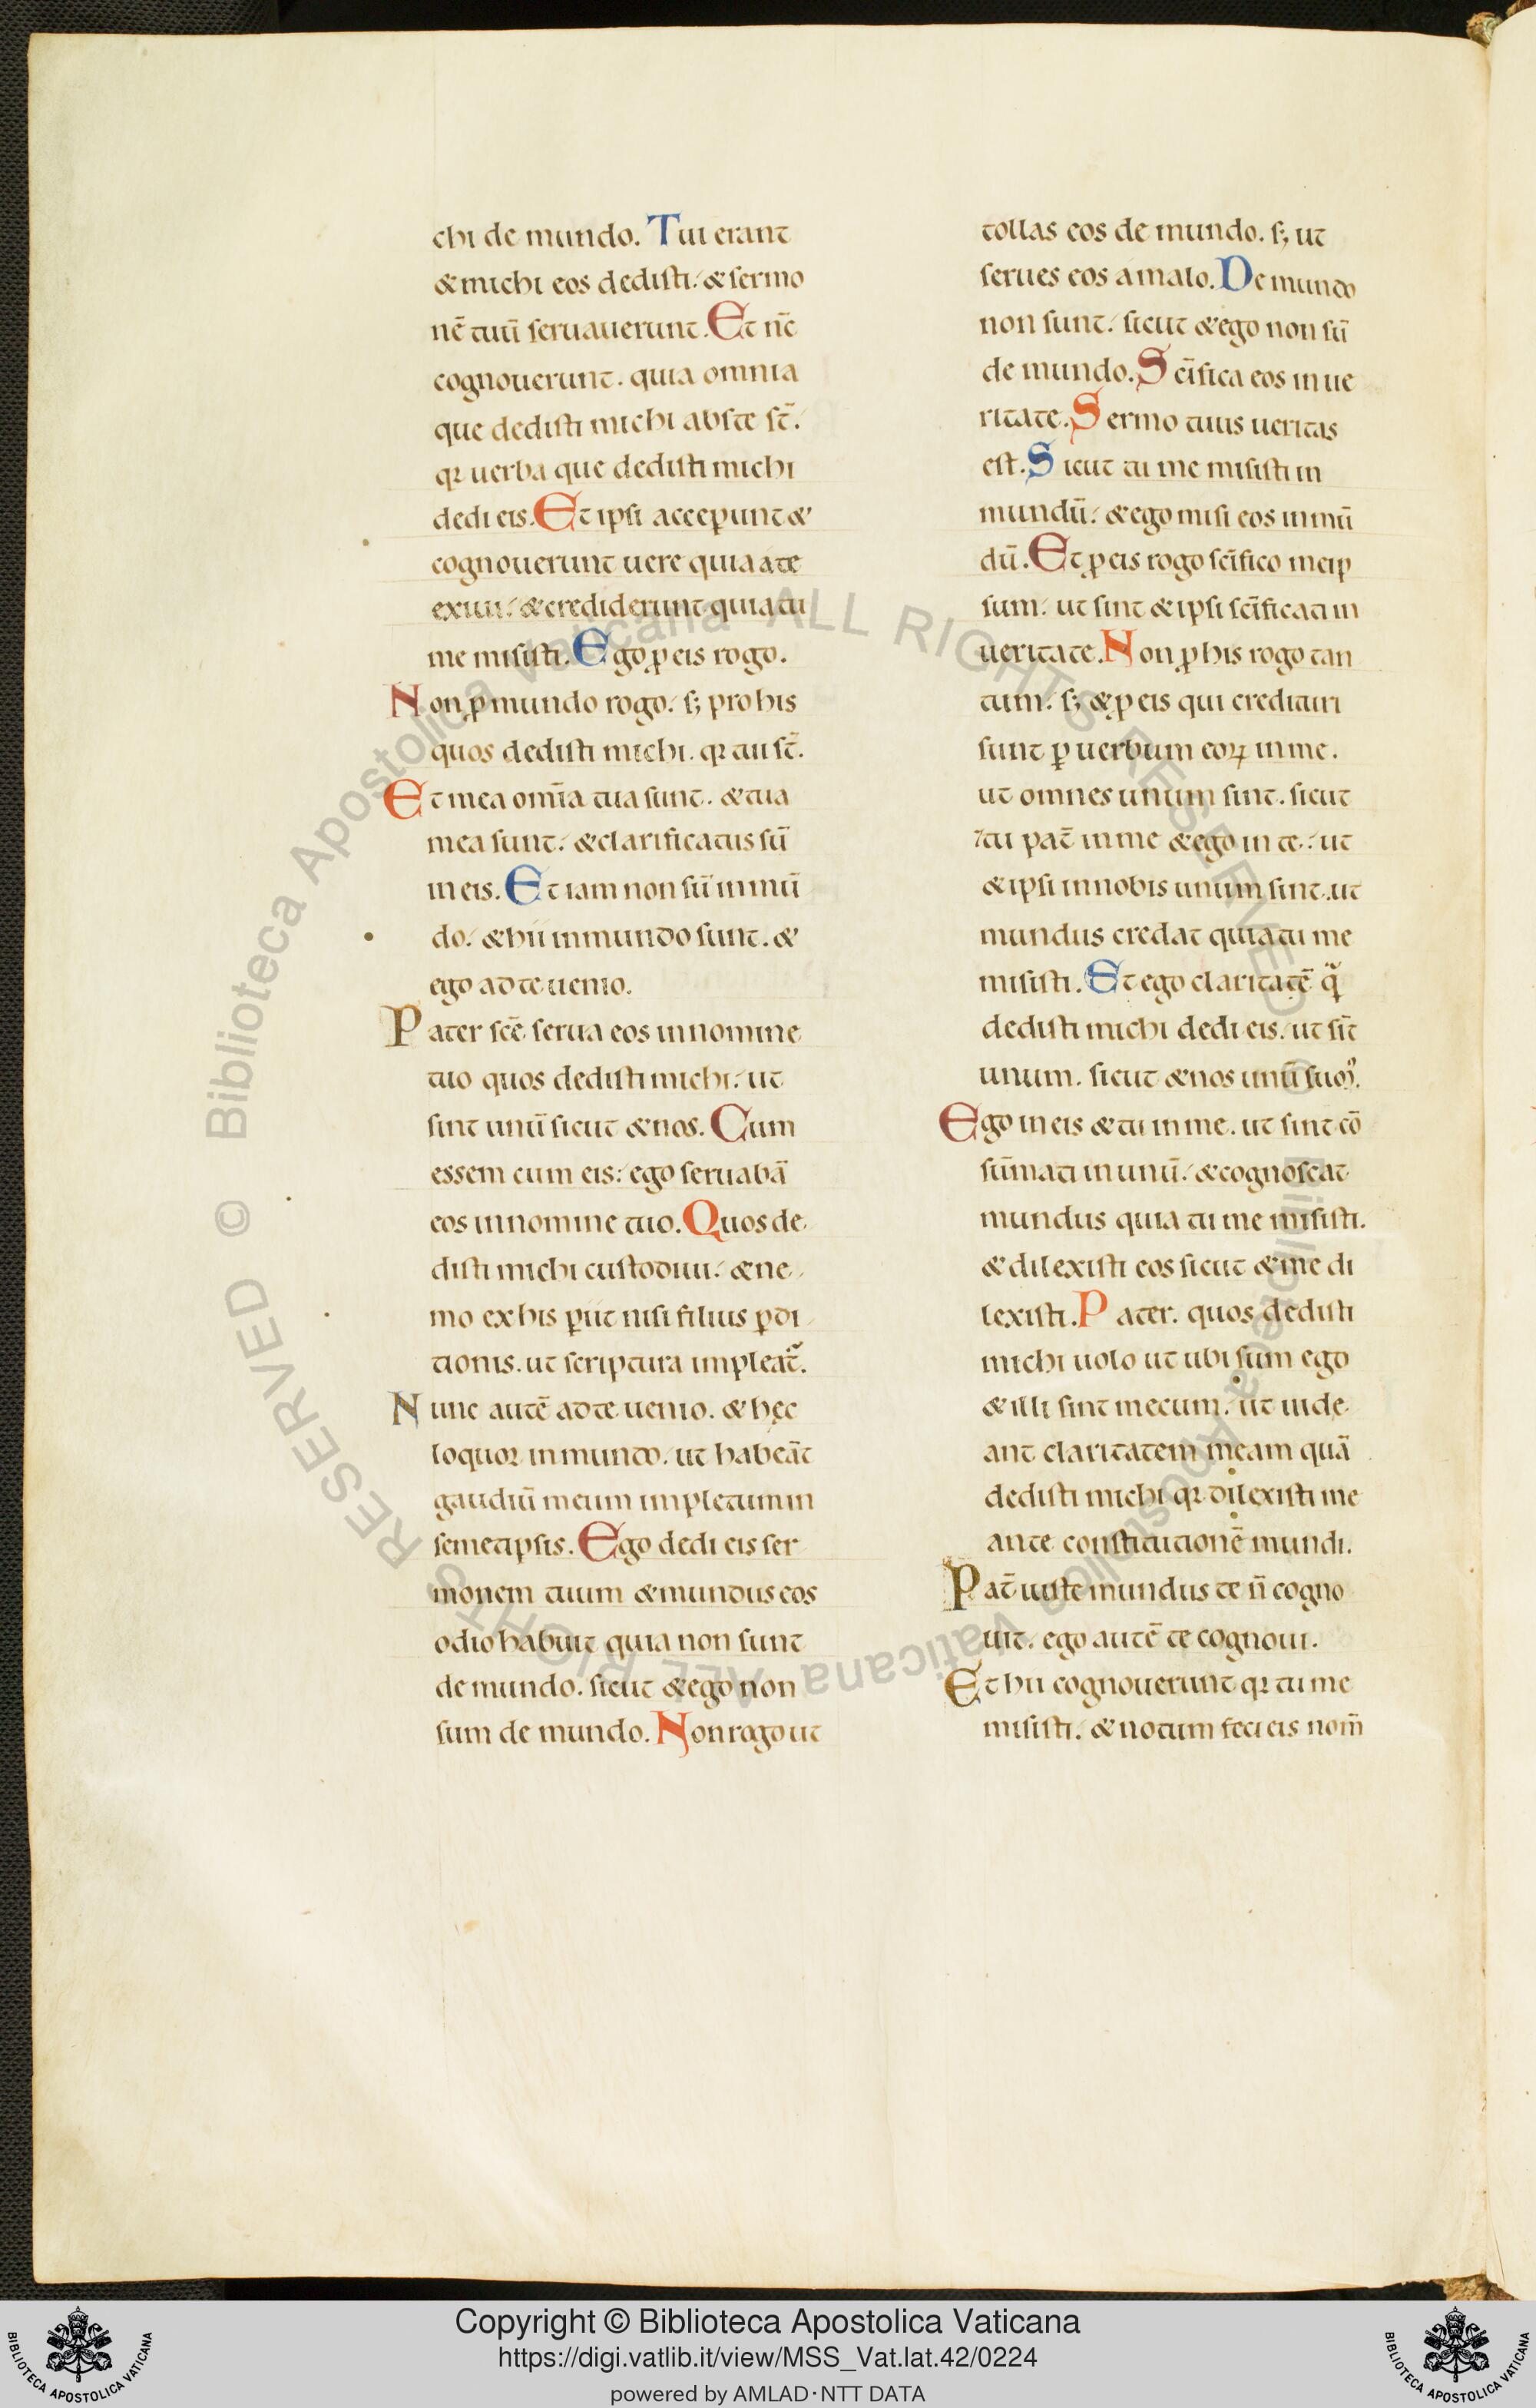 chi de mundo. Tui erant
& michi eos dedisti. & sermo
nē tuū seruauerunt. Et nc̄
cognouerunt. quia omnia
que dedisti michi abs te st̄.
qr uerba que dedisti michi
dedi eis. Et ipsi acceꝑunt &
cognouerunt uere quia a te
exiui. & crediderunt quia tu
me misisti. Ego ꝓ eis rogo.
Non ꝓ mundo rogo. s; pro his
quos dedisti michi. qr tui st̄.
Et mea om̄ia tua sunt. & tua
mea sunt. & clarificatus sū
in eis. Et iam non sū in mū
do. & hii in mundo sunt. &
ego ad te uenio.
Pater scē serua eos in nomine
tuo quos dedisti michi. ut
sint unū sicut & nos. Cum
essem cum eis. ego seruabā
eos in nomine tuo. Quos de
disti michi custodiui. & ne
mo ex his ꝑiit nisi filius ꝑdi
tionis. ut scriptura impleat᷑.
Nunc autē ad te uenio. & hęc
loquor in mundo. ut habeāt
gaudiū meum impletum in
semetipsis. Ego dedi eis ser
monem tuum & mundus eos
odio habuit quia non sunt
de mundo. sicut & ego non
sum de mundo. Non rogo ut
tollas eos de mundo. s; ut
serues eos a malo. De mundo
non sunt. sicut & ego non sū
de mundo. Scīfica eos in ue
ritate. Sermo tuus ueritas
est. Sicut tu me misisti in
mundū. & ego misi eos in mū
dū. Et ꝓ eis rogo scīfico meip
sum. ut sint & ipsi scīficati in
ueritate. Non ꝓ his rogo tan
tum. s; & ꝓ eis qui credituri
sunt ꝑ uerbum eoꝝ in me.
ut omnes unum sint. sicut
tu pat̄ in me & ego in te. ut
& ipsi in nobis unum sint. ut
mundus credat quia tu me
misisti. Et ego claritatē qͣ̄
dedisti michi dedi eis. ut sīt
unum. sicut & nos unū sumꝰ.
Ego in eis & tu in me. ut sint cō
sūmati in unū. & cognoscat
mundus quia tu me misisti.
& dilexisti eos sicut & me di
lexisti. Pater. quos dedisti
michi uolo ut ubi sum ego
& illi sint mecum. ut uide
ant claritatem meam quā
dedisti michi qr dilexisti me
ante constitutionē mundi.
Pat̄ iuste mundus te n̄ cogno
uit. ego autē te cognoui.
Et hii cognouerunt qr tu me
misisti. & notum feci eis nom̄
© Biblioteca Apostolica Vaticana ALL RIGHTS RESERVED © Biblioteca Apostolica Vaticana ALL RIGHTS RESERVED
Copyright © Biblioteca Apostolica Vaticana
https://digi.vatlib.it/view/MSS_Vat.lat.42/0224
powered by AMLAD·NTT DATA
BIBLIOTECA APOSTOLICA VATICANA
BIBLIOTECA APOSTOLICA VATICANA